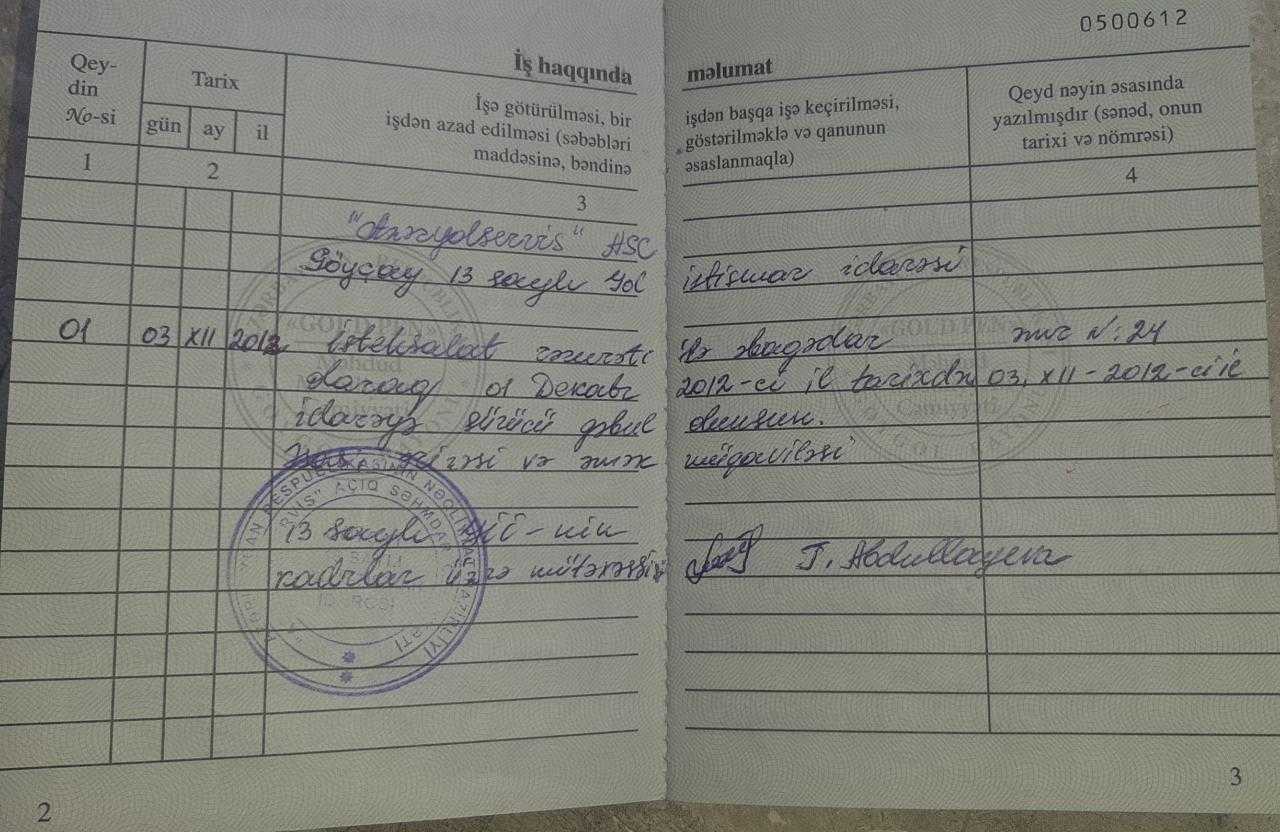 0500612
İş haqqında məlumat
Qey-
din
No-si
Tarix
gün ay il
İşə götürülməsi, bir işdən başqa işə keçirilməsi,
işdən azad edilməsi (səbəbləri göstərilməklə və qanunun
maddəsinə, bəndinə əsaslanmaqla)
Qeyd nəyin əsasında
yazılmışdır (sənəd, onun
tarixi və nömrəsi)
1 2 3 4
"Azəryolservis" ASC
Göyçay 13 saylı Yol istismar idarəsi
01 03 XII 2012 istehsalat zəruəti ilə əlaqədar əmr N: 24
olaraq 01 Dekabr 2012-ci il tarixdən 03. XII - 2012-ci il
idarəyə sürücü qəbul olunsun.
ərizəsi və əmək müqaviləsi
13 saylı Yİİ-nin
kadrlar üzrə mütəxəssisi T. Abdullayeva
AÇIQ SƏHMDAR
RESPUBLİKASININ NƏQLİYYAT NAZİRLİYİ
«GOLD PEN»
«GOLD PEN»
Cəmiyyəti
2
3